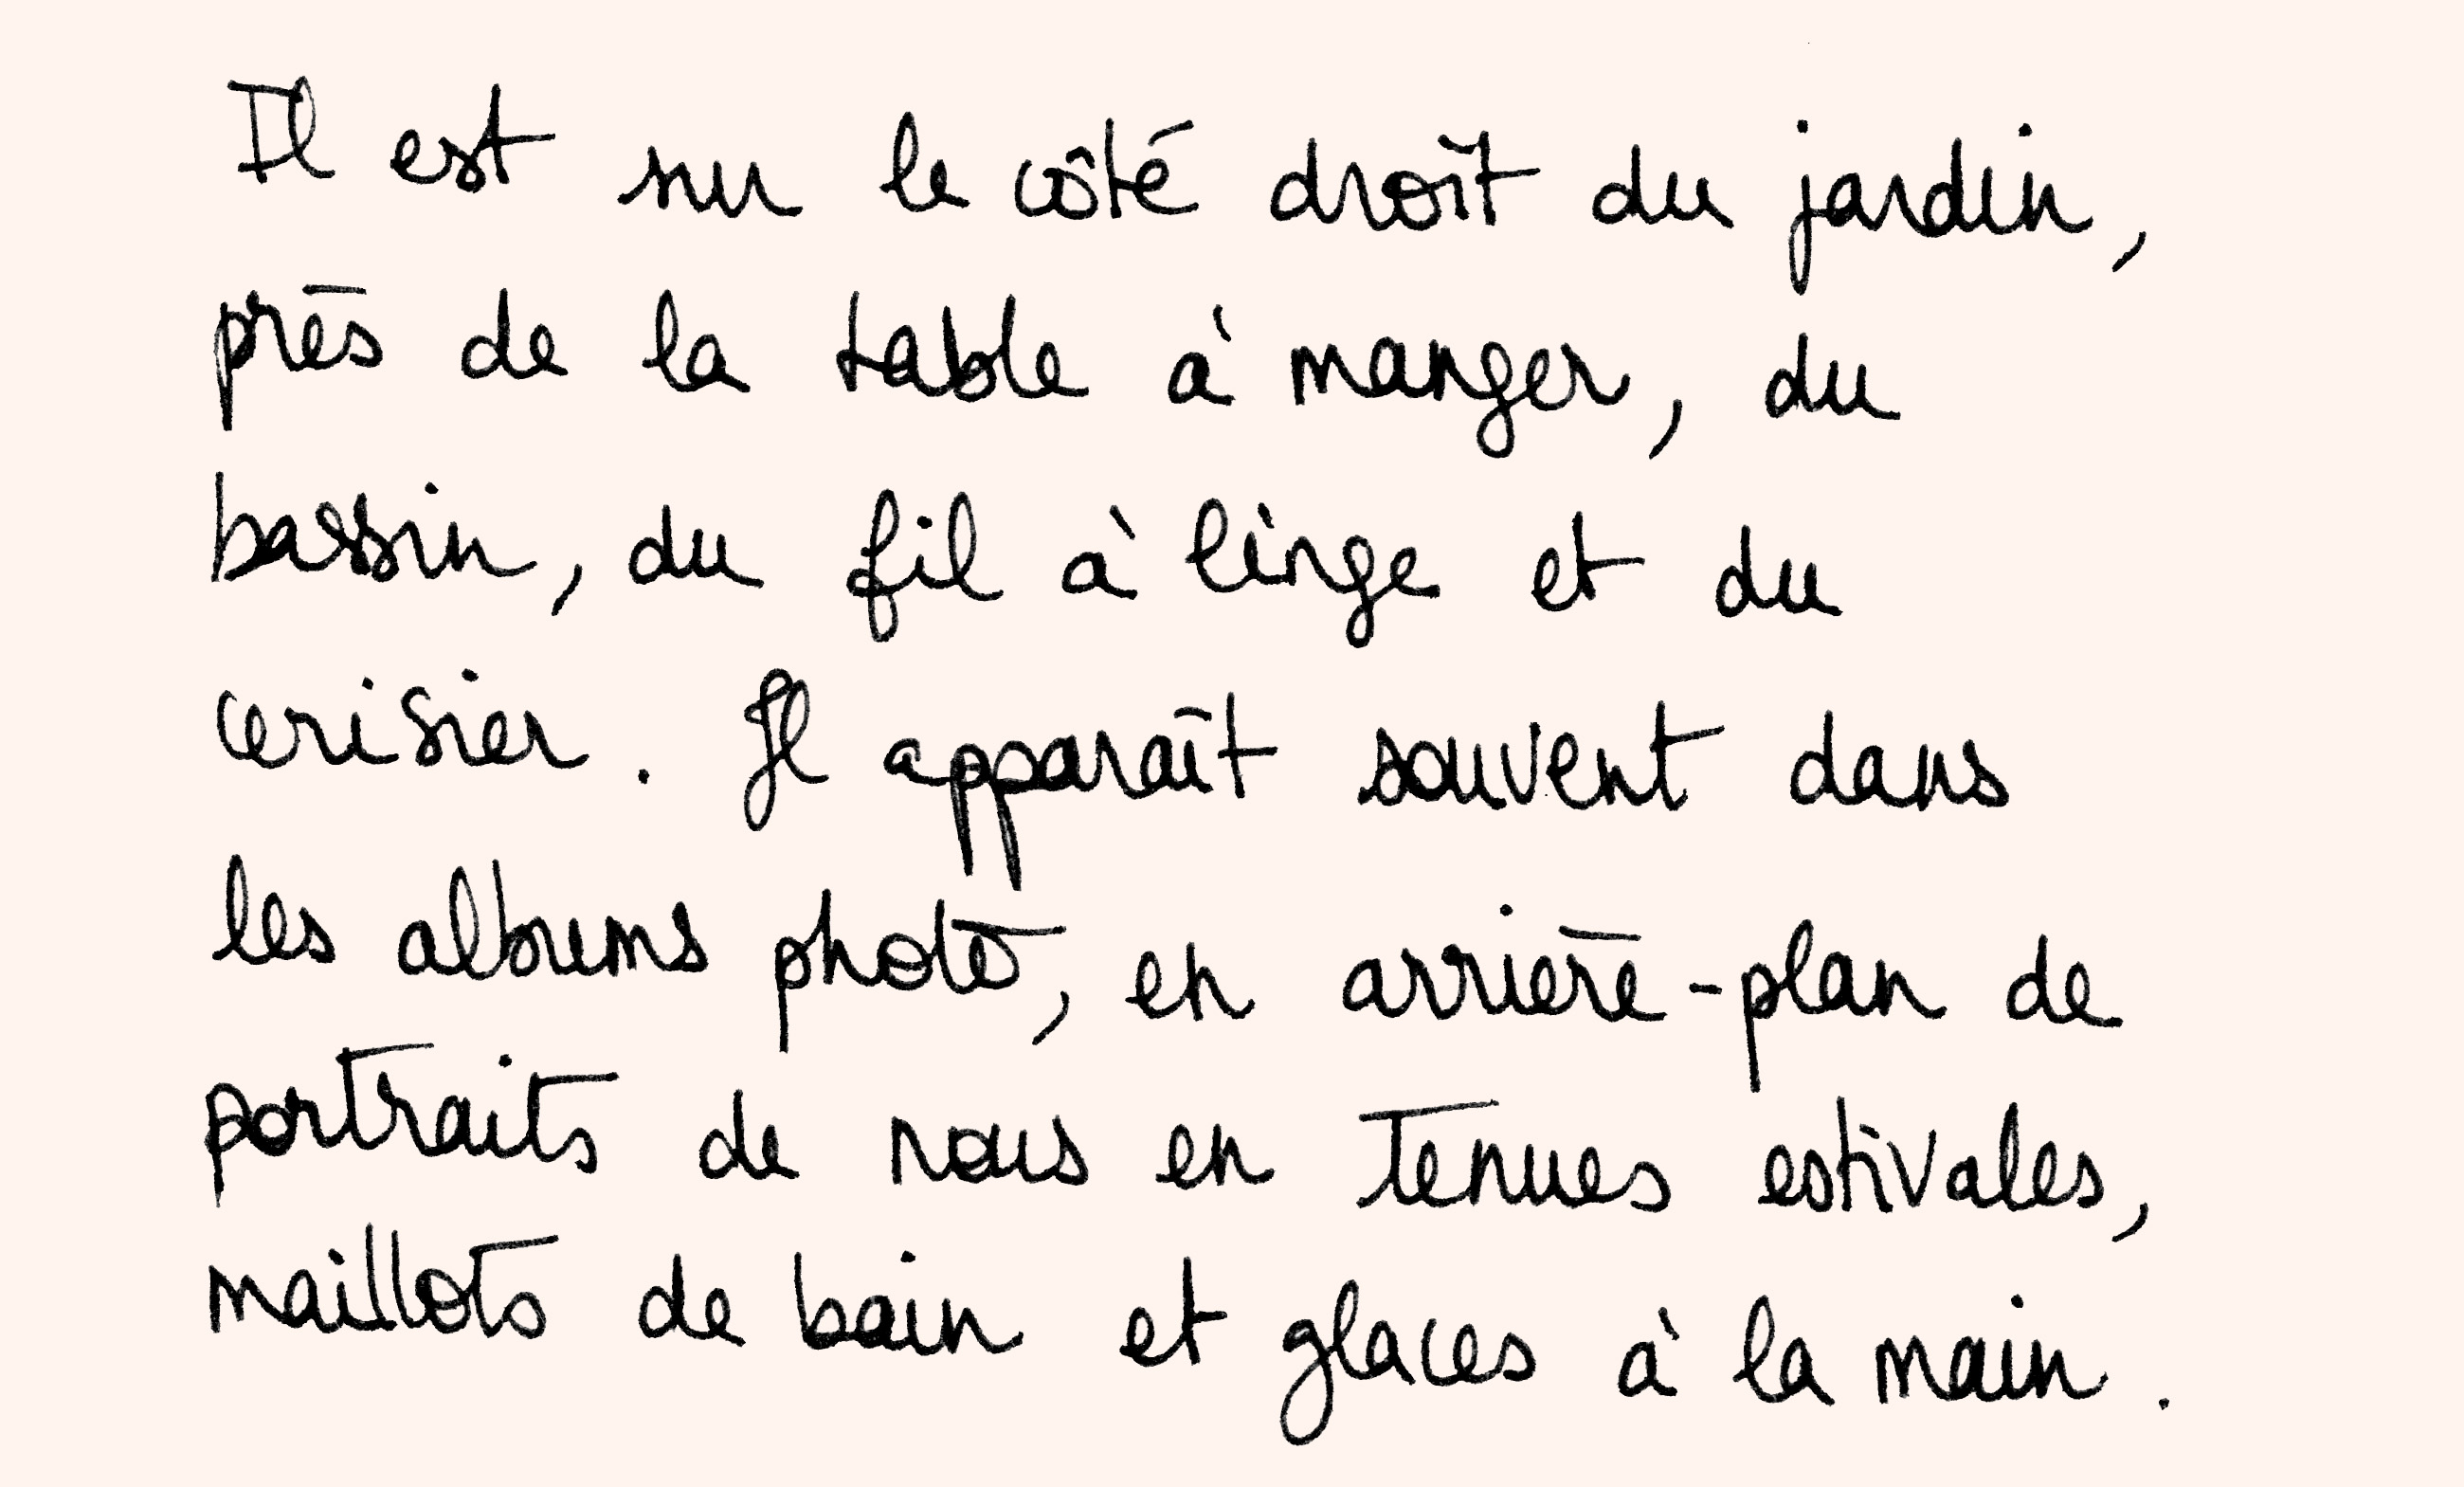 Il est sur le côté droit du jardin,
près de la table à manger, du
bassin, du fil à linge et du
cerisier. Il apparaît souvent dans
les albums photo, en arrière-plan de
portraits de nous en tenues estivales,
maillots de bain et glaces à la main.